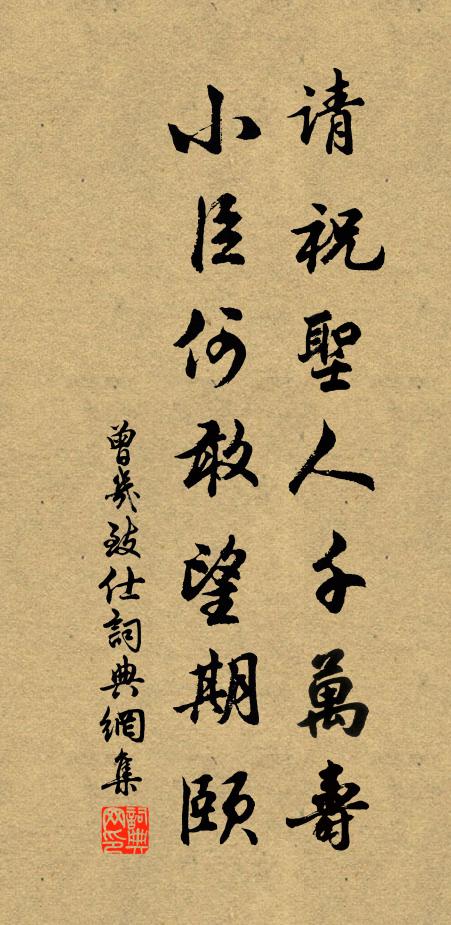 请祝聖人千萬壽
小臣何敢望期頤
曾幾致仕詞典網集
詞典网印